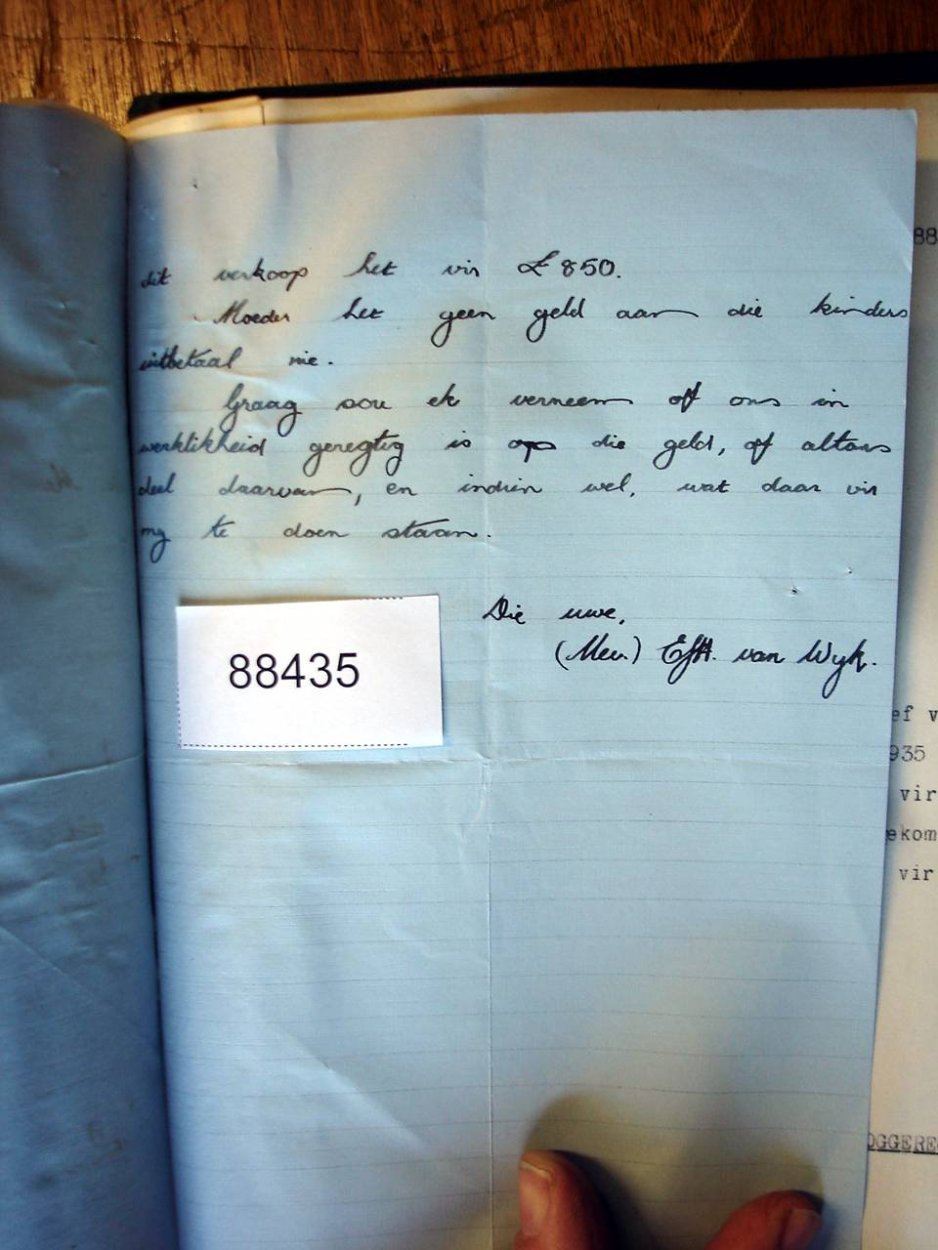 dit verkoop het vir £850.
Moeder het geen geld aan die kinders
uitbetaal nie.
Graag sou ek verneem of ons in
werklikheid geregtig is op die geld, of altans
deel daarvan, en indien wel, wat daar vir
my te doen staan.
Die uwe,
(Mev.) van Wyk.
88435
88
ef v
935
vir
ekom
vir
OGGERE